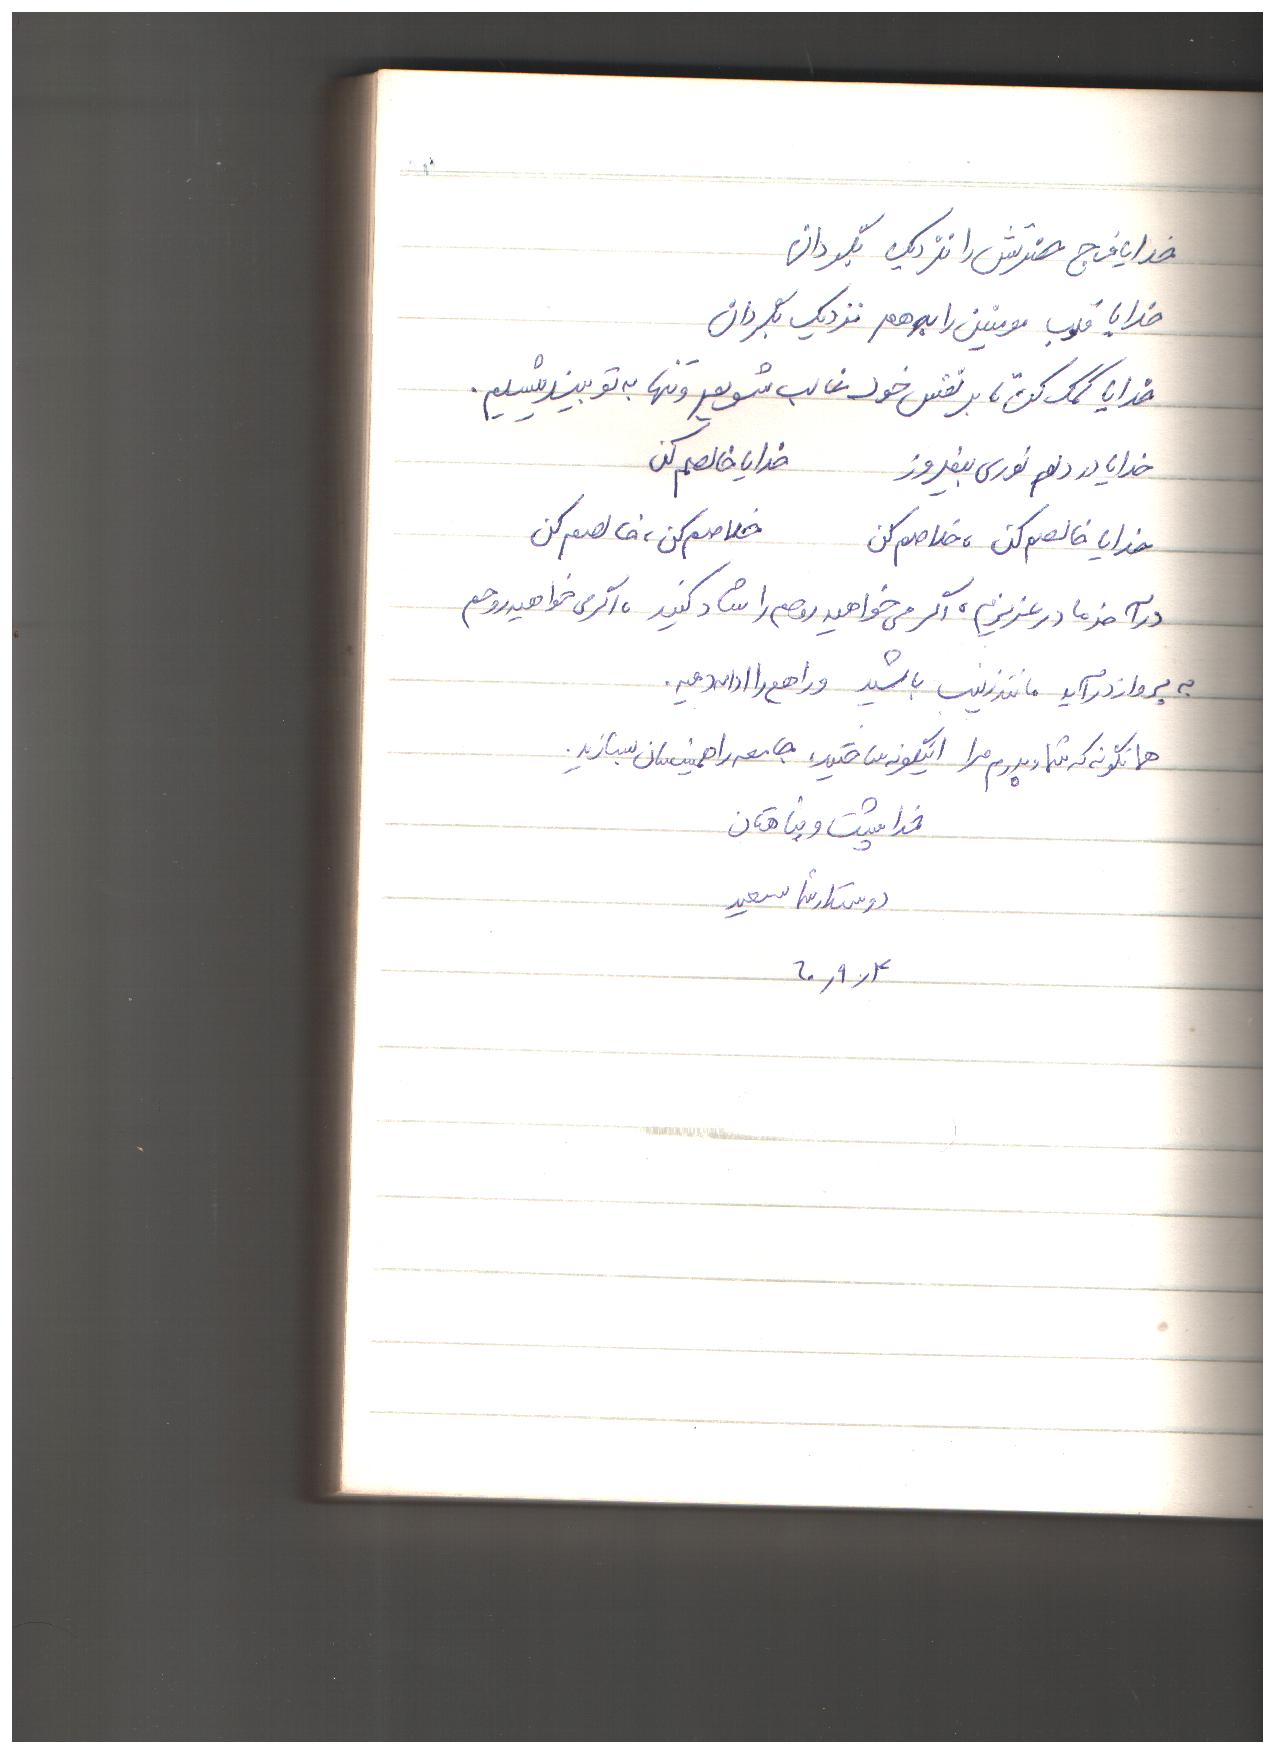 خدایا فرج حضرتش را نزدیک بگردان
خدایا قلوب مومنین را به هم نزدیک بگردان
خدایا کمک کن تا بر نفس خود غالب شویم و تنها به تو بیندیشیم.
خدایا در دلم نوری بیفروز خدایا خالصم کن
خدایا خالصم کن، خلاصم کن خلاصم کن، خالصم کن
در آخر مادر عزیزم، اگر می خواهید روحم را شاد کنید، اگر می خواهید روحم
به پرواز در آید مانند زینب باشید و راهم را ادامه دهید.
همانگونه که شما و پدرم مرا اینگونه ساختید، جامعه را همینسان بسازید.
خدا پشت و پناهتان
دوستدار شما سعید
۶۰٫۹٫۴